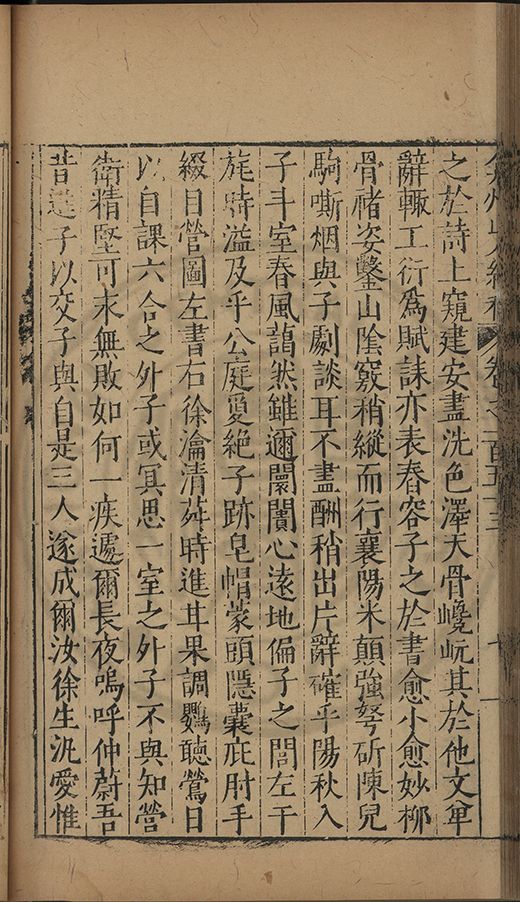 弇州山人續稿 卷之一百五十三 十一
之於詩上窺建安盡洗色澤天骨巉屼其於他文單
辭輒工衍為賦誄亦表春容子之於書愈小愈妙柳
骨褚姿鑿山陰竅稍縱而行襄陽米顛強弩斫陳兒
駒嘶烟與子劇談耳不盡酬稍出片辭確乎陽秋入
子斗室春風藹然雖邇闤闠心遠地偏子之閭左干
旄時溢及乎公庭愛絕子跡皂帽蒙頭隱囊庇肘手
綴目營圖左書右徐瀹清荈時進茸果調鸚聽鶯日
以自課六合之外子或冥思一室之外子不與知營
衛精堅可末無敗如何一疾遽爾長夜嗚呼仲蔚吾
昔造子以交子與自是三人遂成爾汝徐生汎愛惟